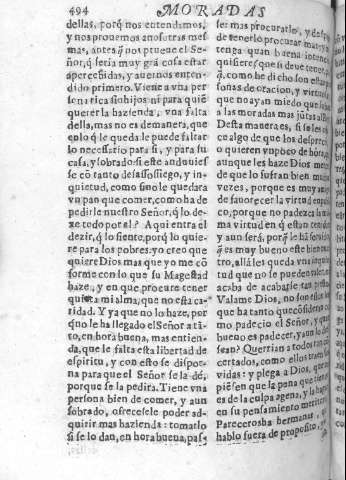 494 MORADAS
dellas, porq̃ nos entendamos,
y nos prouemos anosotras mes
mas, antes q̃ nos prueue el Se-
ñor, q̃ seria muy grã cosa estar
apercebidas, y auernos enten-
dido primero. Viene a vna per
sona rica sin hijos ni para quiẽ
querer la hazienda, vna falta
della, mas no es de manera, que
en lo q̃ le queda le puede faltar
lo necessario para si, y para su
casa, y sobrado: si este anduuies
se cõ tanto desassossiego, y in-
quietud, como si no le quedara
vn pan que comer, como ha de
pedirle nuestro Señor, q̃ lo de-
xe todo por el? Aqui entra el
dezir, q̃ lo siente, porq̃ lo quie-
re para los pobres: yo creo que
quiere Dios mas que yo me cõ
forme con lo que su Magestad
haze, y en que procure tener
quieta mi alma, que no esta ca-
ridad. Y ya que no lo haze, por
q̃ no le ha llegado el Señor a tã-
to, en hora buena, mas entien-
da, que le falta esta libertad de
espiritu, y con esto se dispor-
na para que el Señor se la dé,
porque se la pedira. Tiene vna
persona bien de comer, y aun
sobrado, ofrecesele poder ad-
quirir mas hazienda: tomarlo
si se lo dan, en hora buena, pas-
ser mas procurarlo, y desp
de tenerlo procurar mas y
tenga quan buena intenc
quisiere, que si deue tener, p
q̃, como he dicho son estas
sonas de oracion, y virtud
que no ayan miedo que
a las moradas mas jũtas al
Desta manera es, si se les o
ce algo de que los despre
o quieren vn poco de hõra,
aunque les haze Dios mer
de que lo sufran bien mu
vezes, porque es muy am
de fauorecer la virtud en publi
co, porque no padezca la mi
ma virtud en q̃ estan tenidas
y aun será, porq̃ le hã serui
q̃ es muy bueno este bien nu
tro, allá les queda vna inqui
tud que no se pueden valer, ni
acaba de acabarse tan presto
Valame Dios, no son estos los
que ha tanto que cõsideran co
mo padecio el Señor, y quã
bueno es padecer, y aun lo de
sean? Querrian a todos tan cõ
certados, como ellos traen sus
vidas: y plega a Dios, que no
piẽsen que la pena que tienen
es de la culpa agena, y la hagan
en su pensamiento meritoria
Pareceros ha hermanas, q̃
hablo fuera de proposito, y